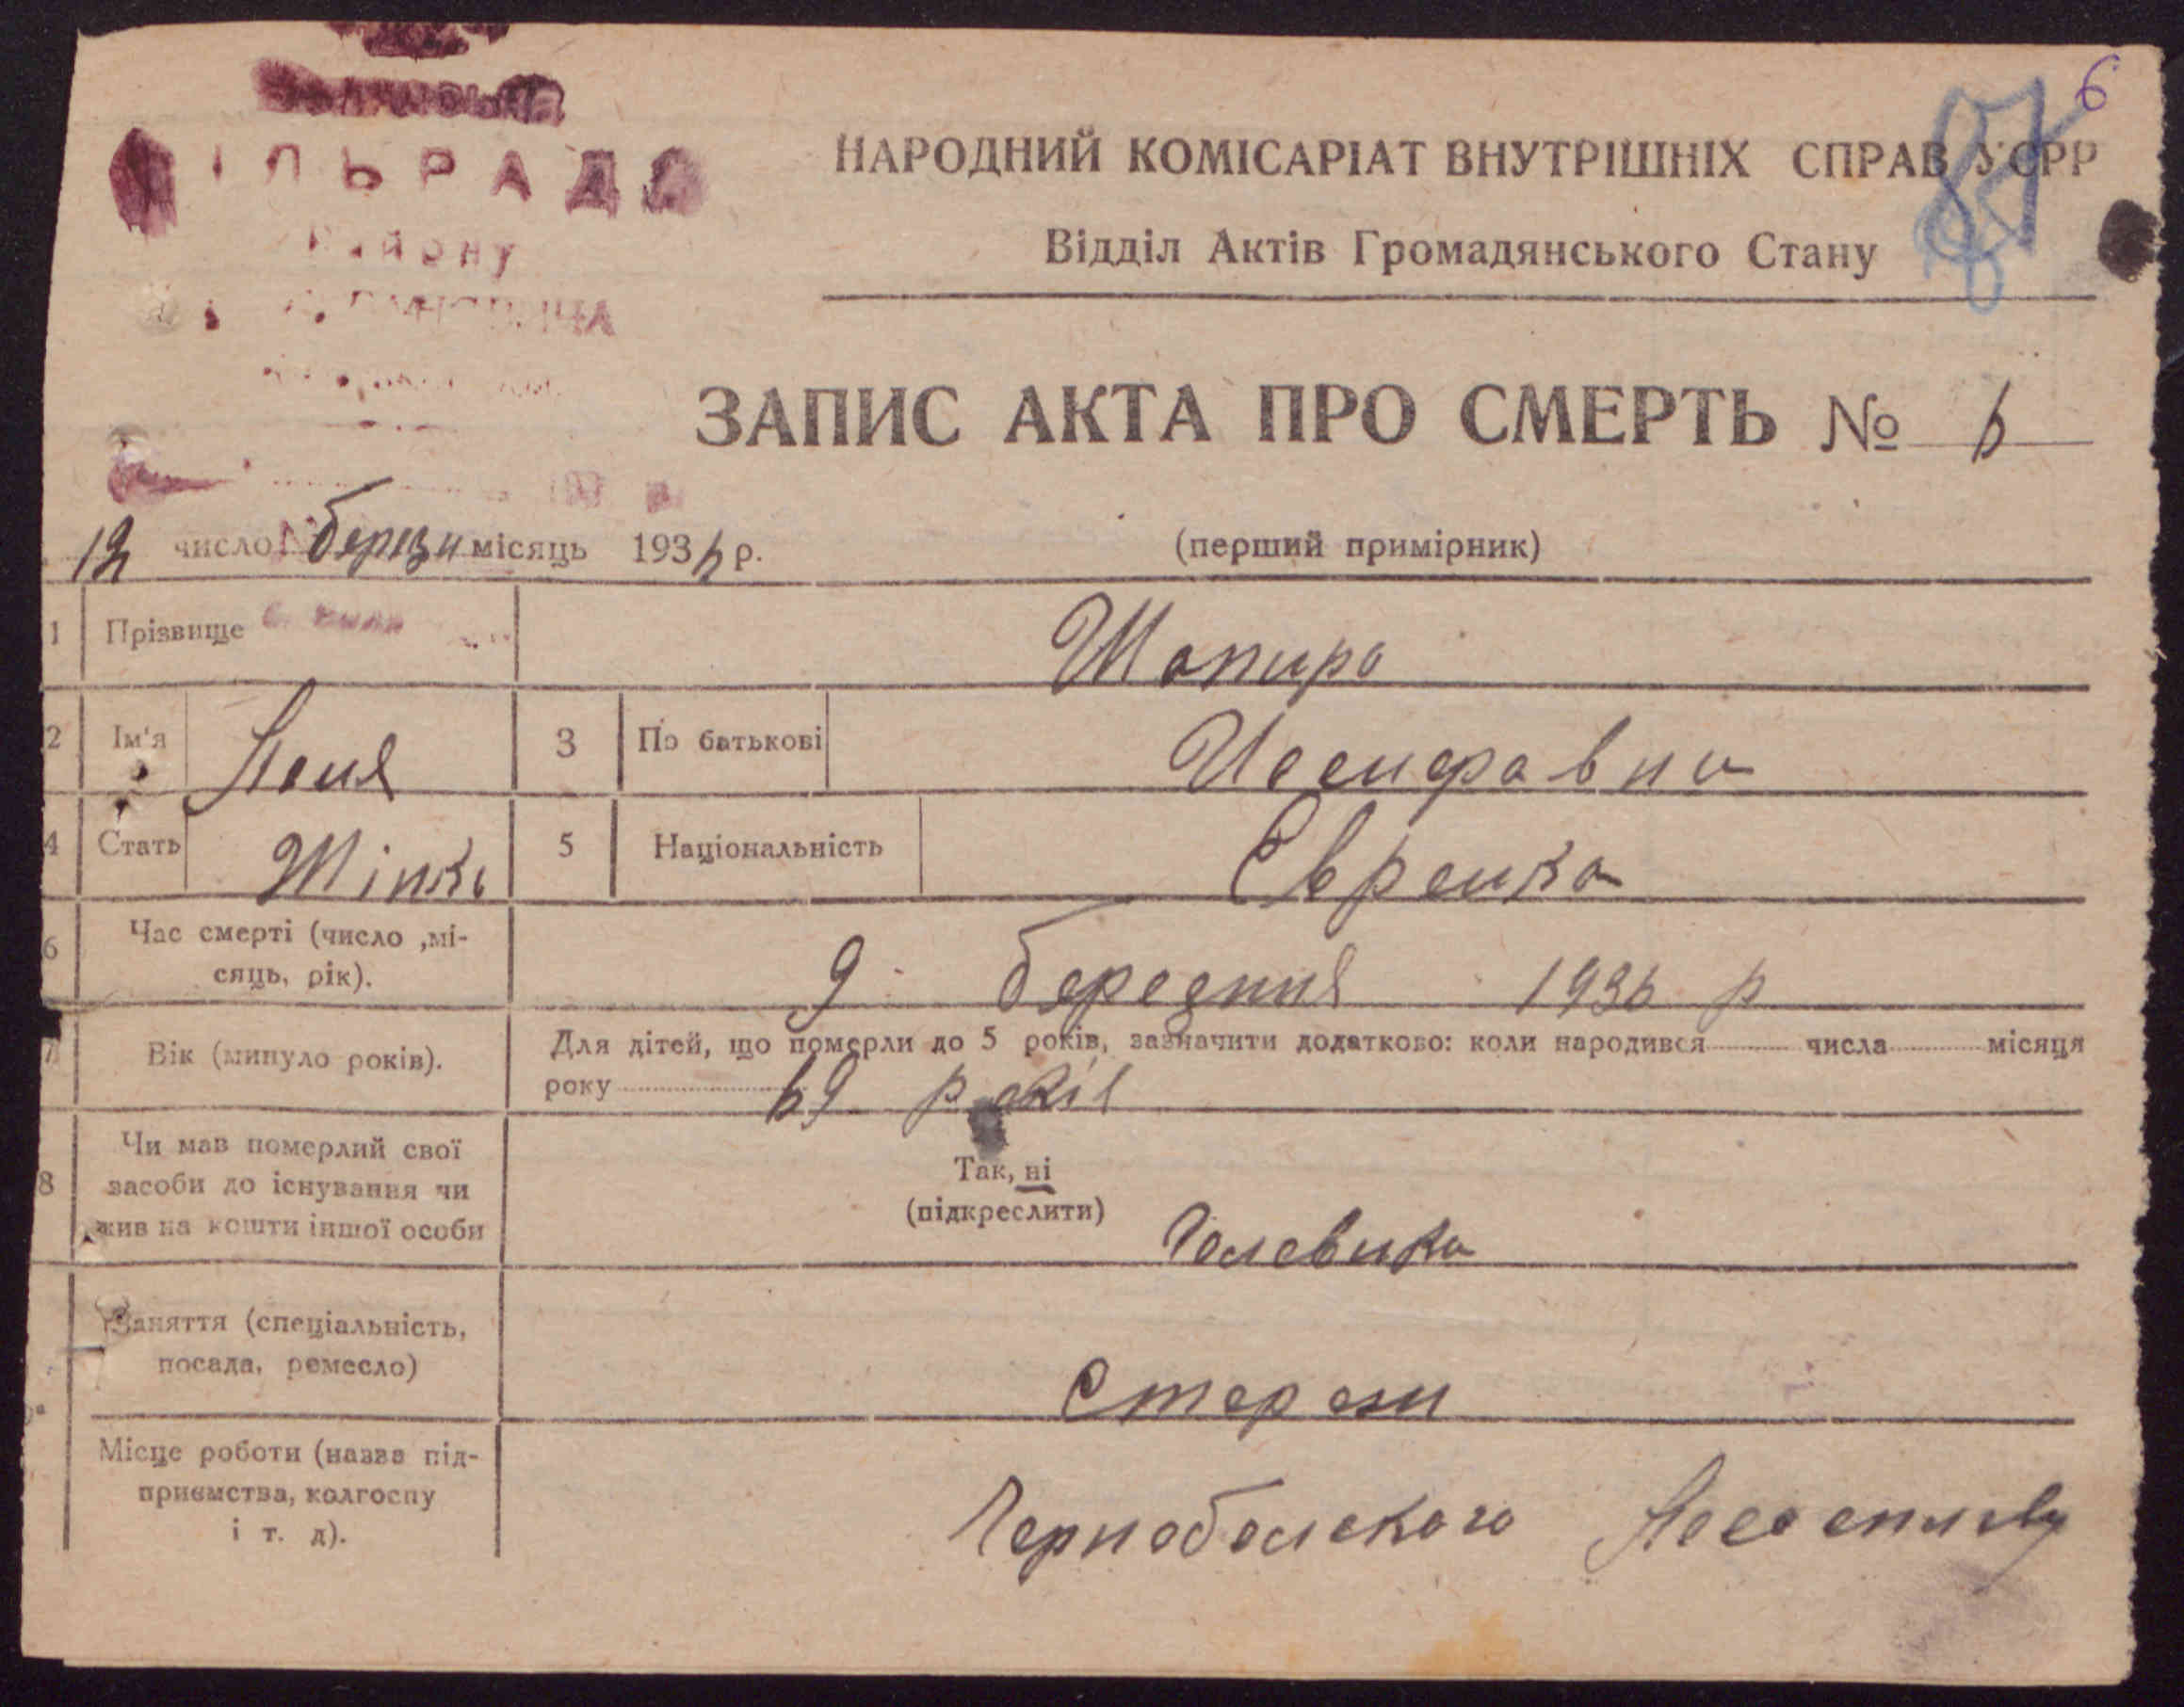 6
87
СІЛЬРАДА
району
НАРОДНИЙ КОМІСАРІАТ ВНУТРІШНІХ СПРАВ УСРР
Відділ Актів Громадянського Стану
ЗАПИС АКТА ПРО СМЕРТЬ № 6
12 число березня місяць 1936 р.
(перший примірник)
1 Прізвище Шапиро
2 Ім'я 3 По батькові Иосифавна
4 Стать Жінка 5 Національність Єврейка
6 Час смерті (число ,мі-
сяць, рік).
9 березння 1936 р
7 Вік (минуло років).
Для дітей, що померли до 5 років, зазначити додатково: коли народився числа місяця
року 69 років
8 Чи мав померлий свої
засоби до існування чи
жив на кошти іншої особи
Так, ні
(підкреслити)
Заняття (спеціальність,
посада, ремесло)
Місце роботи (назва під-
приємства, колгоспу
і т. д).
Чернобольского